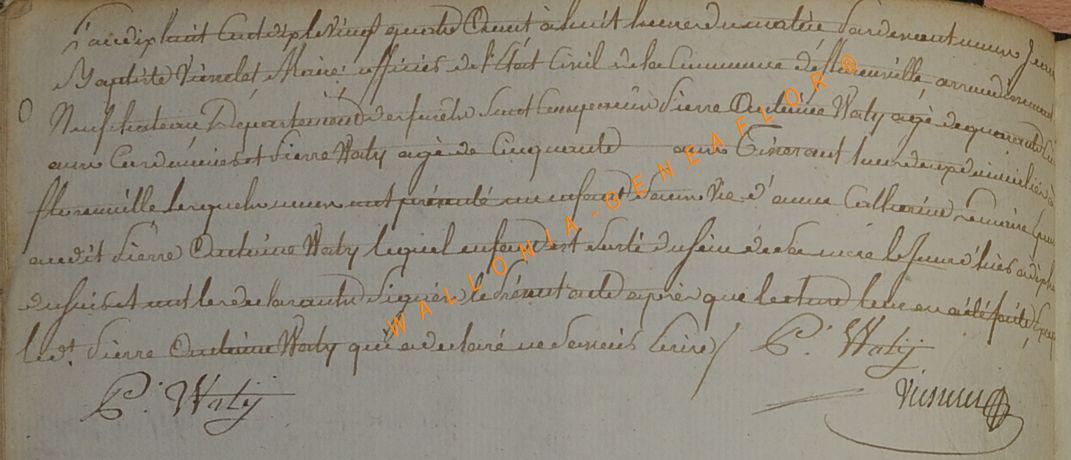 L'an dix huit cent dix le vingt quatre août à huit heures du matin Pardevant nous Jean
Baptiste Maire officier de l'état Civil de la Commune de florenville arrondissement
Neufchateau Département des forêts Sont Comparus Pierre Antoine Waty agé de quarante
ans Cordonnier et Pierre Waty agé de Cinquante ans tisserant tous deux domiciliés à
florenville lesquels nous ont présenté un enfant Née d'anne Catherine
audit Pierre Antoine Waty lequel enfant est Sorti du Sein de Sa mère le
du Soir et ont les declarants Signer le présent acte après que lecture leur en a été faite
led.t Pierre Antoine Waty qui a declaré ne Savoir Ecrire / P. Waty
P. Waty
WALLONIA-GENEAFLOR ®